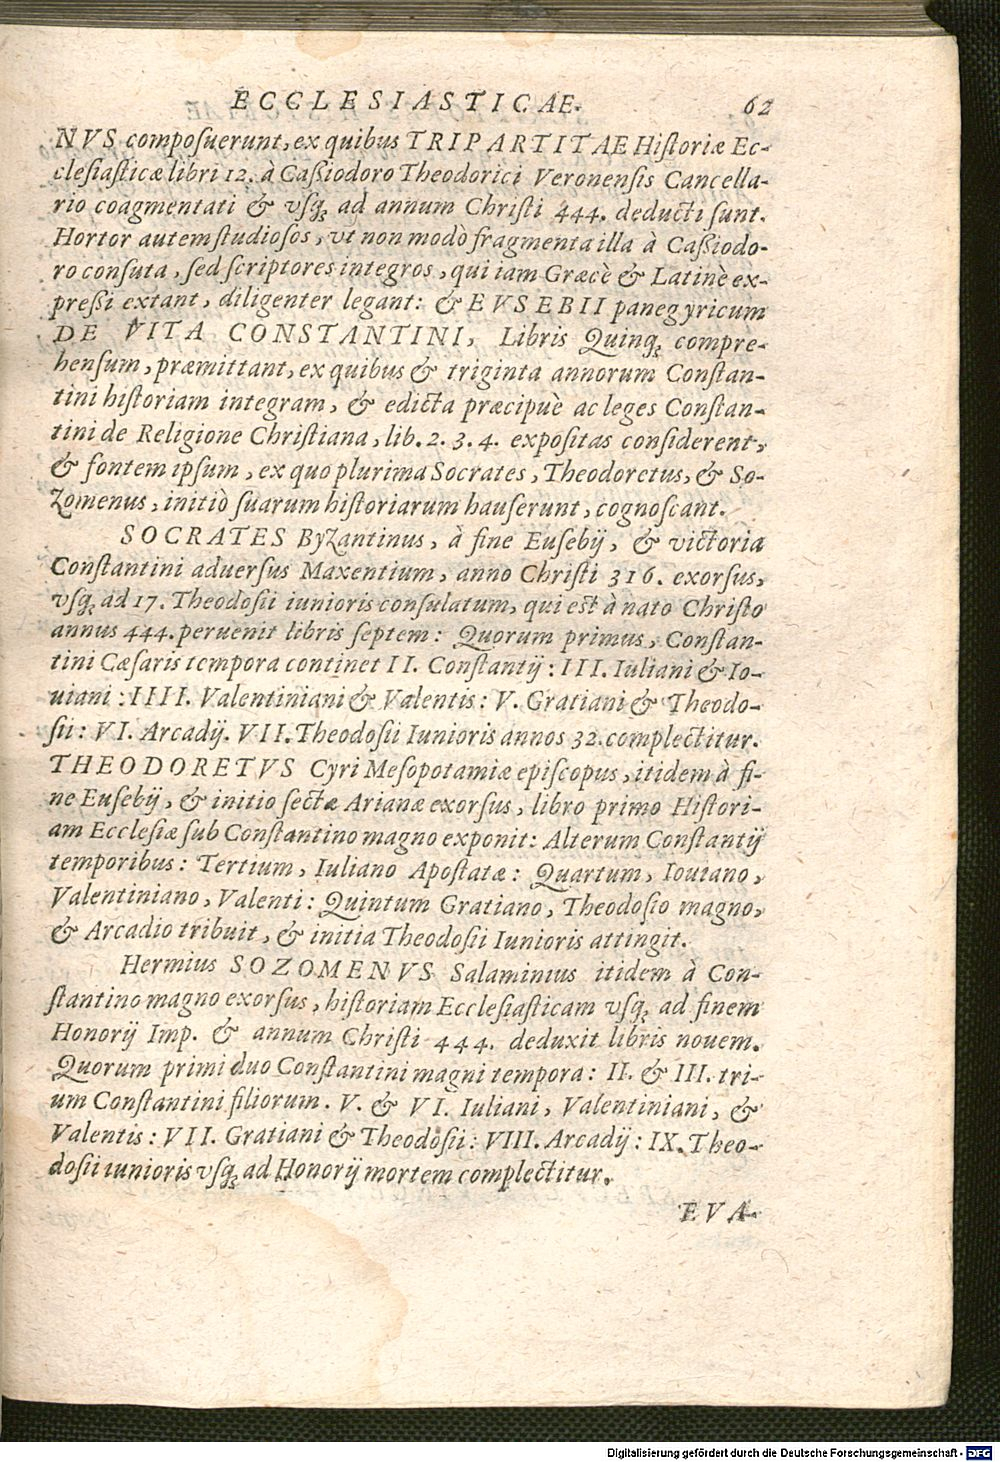 ECCLESIASTICAE. 62
NVS composuerunt, ex quibus TRIPARTITAE Historiæ Ec-
clesiasticæ libri 12. à Caßiodoro Theodorici Veronensis Cancella-
rio coagmentati & vsq; ad annum Christi 444. deducti sunt.
Hortor autem studiosos, vt non modò fragmenta illa à Caßiodo-
ro consuta, sed scriptores integros, qui iam Græcè & Latinè ex-
preßi extant, diligenter legant: & EVSEBII panegyricum
DE VITA CONSTANTINI, Libris Quinq; compre-
hensum, præmittant, ex quibus & triginta annorum Constan-
tini historiam integram, & edicta præcipuè ac leges Constan-
tini de Religione Christiana, lib. 2. 3. 4. expositas considerent,
& fontem ipsum, ex quo plurima Socrates, Theodoretus, & So-
zomenus, initiò suarum historiarum hauserunt, cognoscant.
SOCRATES Byzantinus, à fine Eusebij, & victoria
Constantini aduersus Maxentium, anno Christi 316. exorsus,
vsq; ad 17. Theodosii iunioris consulatum, qui est à nato Christo
annus 444. peruenit libris septem: Quorum primus, Constan-
tini Cæsaris tempora continet II. Constantij: III. Iuliani & Io-
uiani: IIII. Valentiniani & Valentis: V. Gratiani & Theodo-
sii: VI. Arcadij. VII. Theodosii Iunioris annos 32. complectitur.
THEODORETVS Cyri Mesopotamiæ episcopus, itidem à fi-
ne Eusebij, & initio sectæ Arianæ exorsus, libro primo Histori-
am Ecclesiæ sub Constantino magno exponit: Alterum Constantij
temporibus: Tertium, Iuliano Apostatæ: Quartum, Iouiano,
Valentiniano, Valenti: Quintum Gratiano, Theodosio magno,
& Arcadio tribuit, & initia Theodosii Iunioris attingit.
Hermius SOZOMENVS Salaminius itidem à Con-
stantino magno exorsus, historiam Ecclesiasticam vsq; ad finem
Honorij Imp. & annum Christi 444. deduxit libris nouem.
Quorum primi duo Constantini magni tempora: II. & III. tri-
um Constantini filiorum. V. & VI. Iuliani, Valentiniani, &
Valentis: VII. Gratiani & Theodosii: VIII. Arcadij: IX. Theo-
dosii iunioris vsq; ad Honorij mortem complectitur.
EVA-
Digitalisierung gefördert durch die Deutsche Forschungsgemeinschaft - DFG